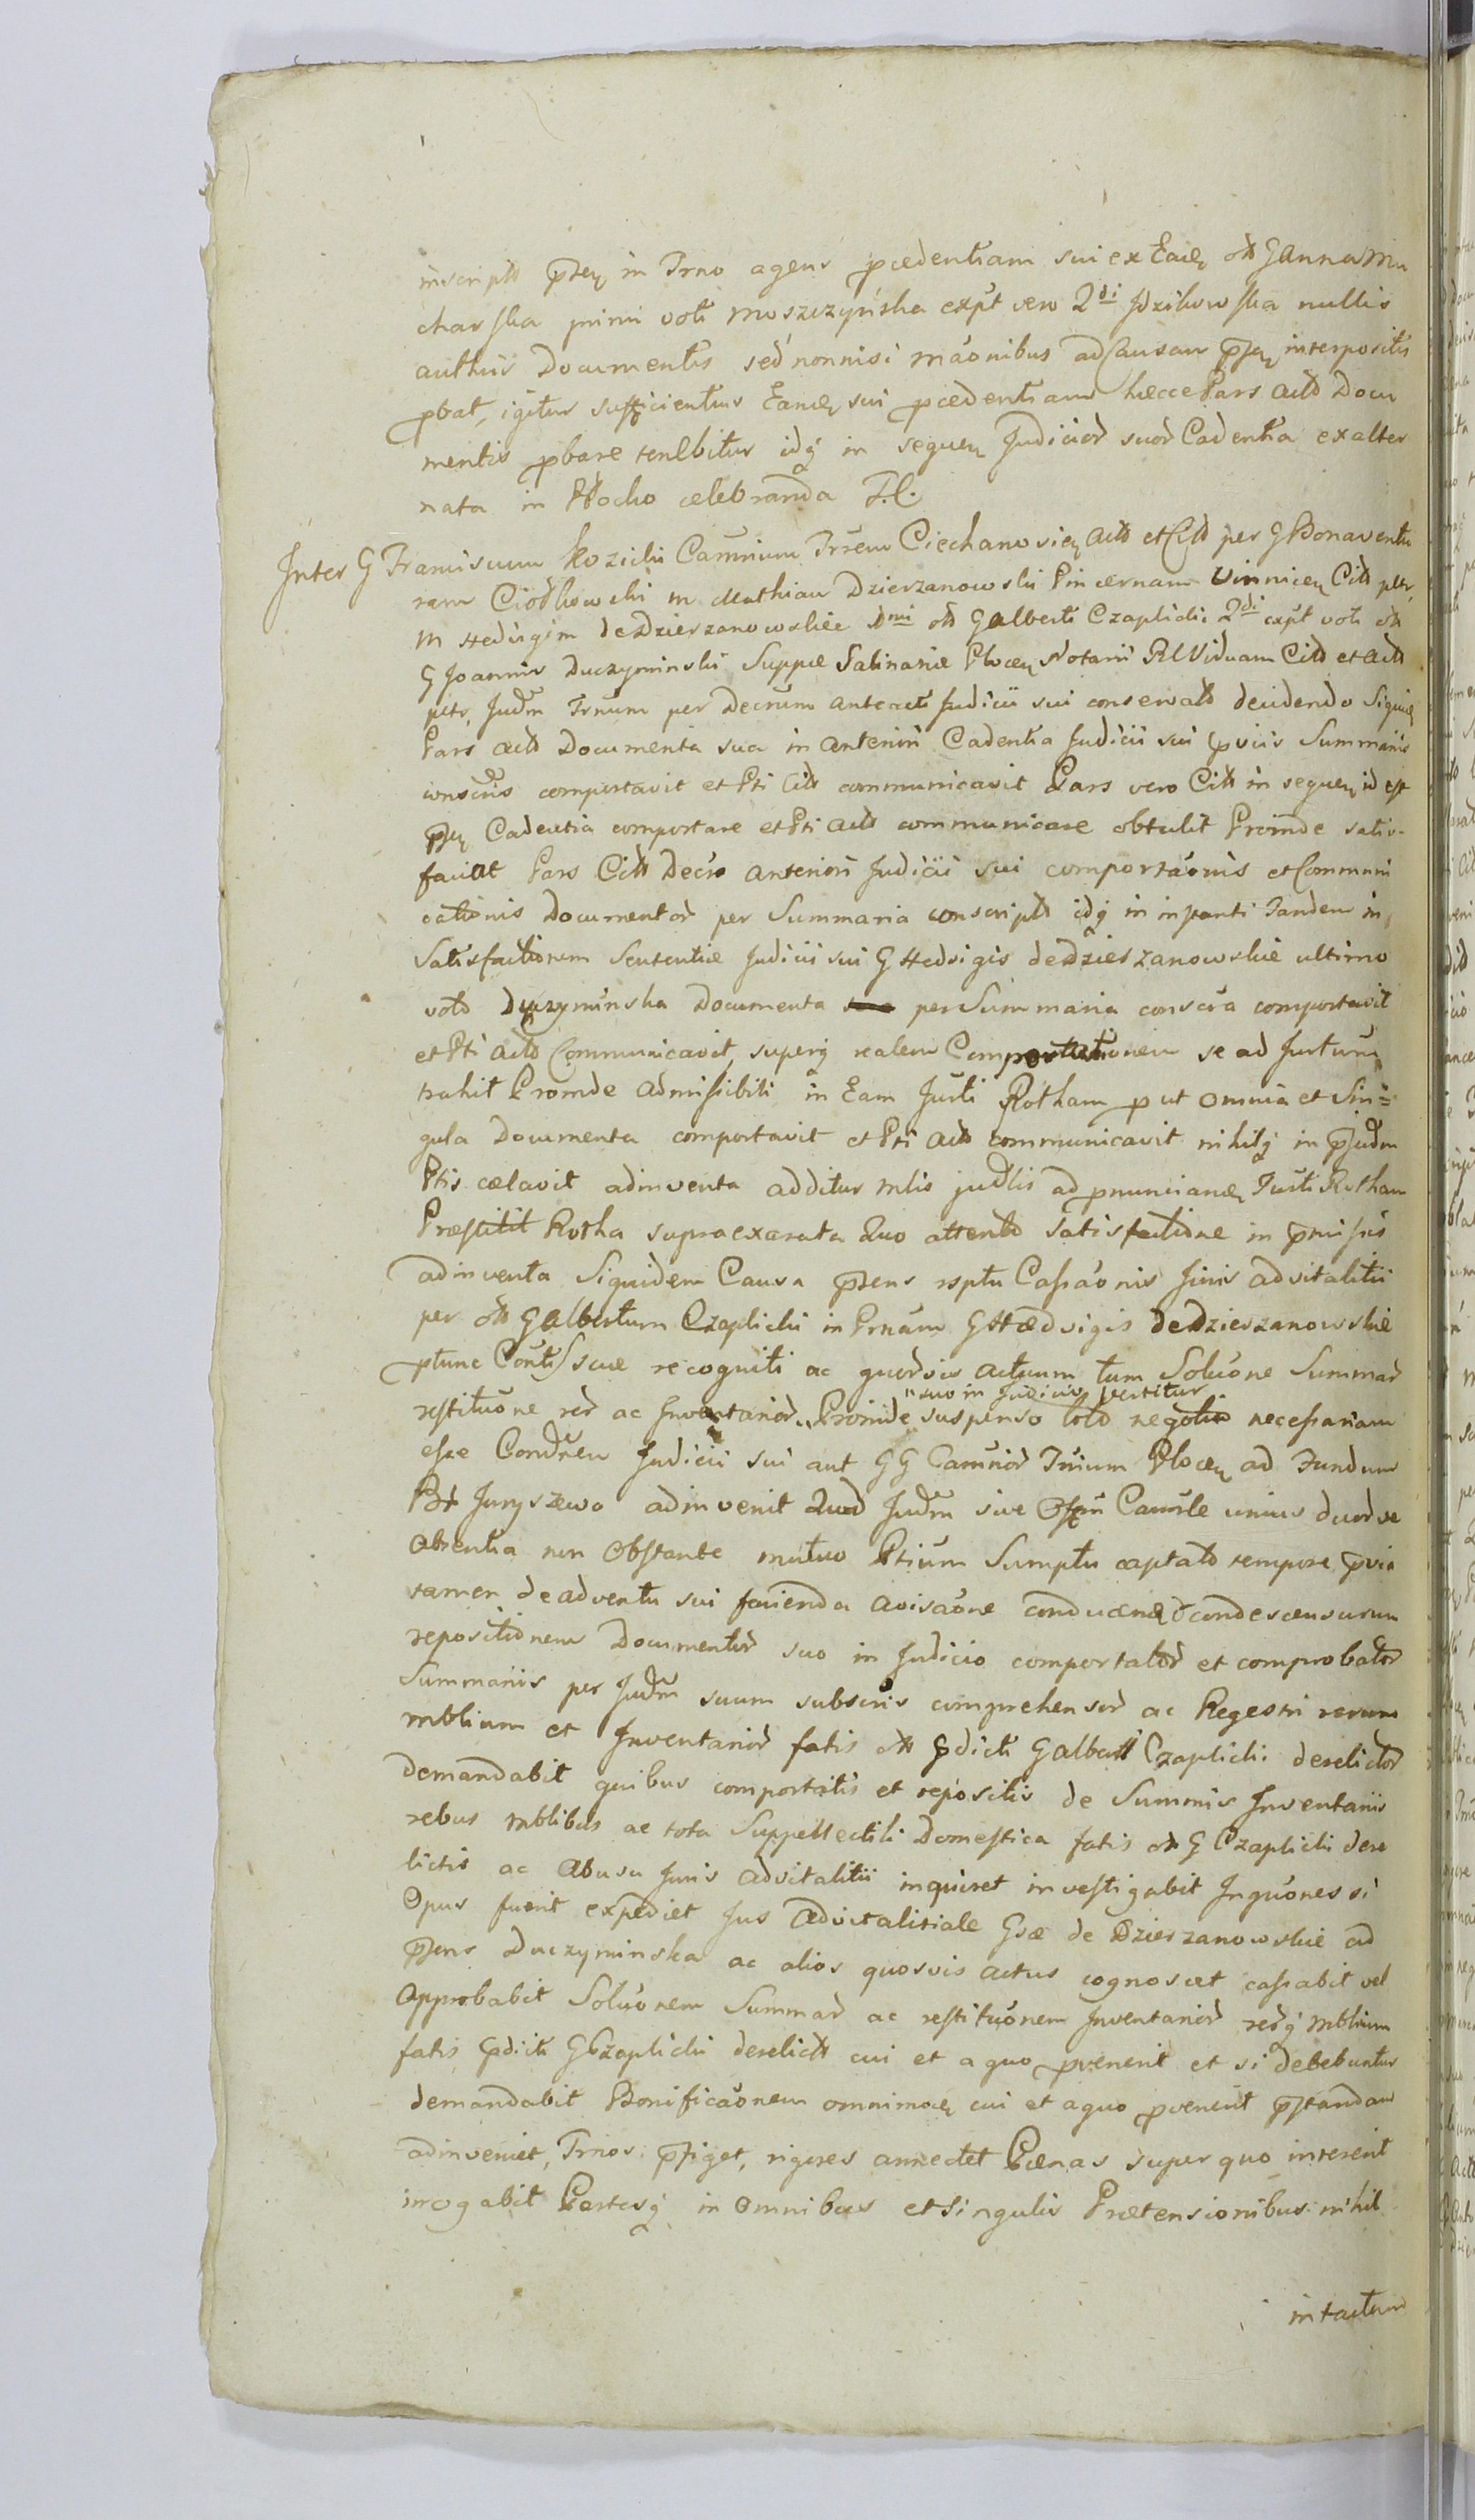 inscript pñteɱ in Trno agens pcedentiam sui ex Eadeɱ olt G Anna Mu
charska primi voti Moszczyńska expt vero 2di Idzikowska nullis
authiis Documentis sed nonnisi mãonibus ad Causam pñteɱ interpositis
pbat, igitur sufficientius Eandeɱ sui pcedentiam hæcce Pars acto Docu
mentis pbare tenebitur idq in sequeɱ Judicior suor Cadentia ex alter
nata in Plocko celebranda T. C.
Inter G Franciscum Kozicki Camrium Trrem Ciechanovieɱ acto et Citto per G Bonaventu
ram Ciołkowski M Mathiam Dzierzanowski Pincernam Vinniceɱ Citt pltr,
M Hedvigim de Dzierzanowskie 1mi olt G Alberti Czaplicki 2di expt voti olt
G Joannis Duczyminski Suppæ Salinariæ Ploceɱ Notarii Rl Viduam Citto et acto
pltr, Judm Trnum per Decrum anteacti Judicii sui conservato decidendo Siquideɱ
Pars acto Documenta sua in anteriori Cadentia Judicii sui pviis Summariis
conscriis comportavit et Pti Citt communicavit Pars vero Citt in sequeɱ id est
pñteɱ Cadentia comportare et Pti acto communicare obtulit Proinde satis-
faciat Pars Citt Decro anteriori Judicii sui comportãonis et Communi
cationis Documentor per Summaria conscripto idq in instanti Tandem in
Satisfactionem Sententiæ Judicii sui G Hedvigis de Dzierzanowskie ultimo
voto Duczyminska Documenta per Summaria conscra comportavit
et Pti acto Communicavit, superq realem Comportationem se ad Jurtum
trahit Proinde admissibili in Eam Jurti Rotham p ut omnia et Sin=
gula Documenta comportavit et Pti acto communicavit nihilq in pjudm
Ptis celavit adinventa additur Mlis judlis ad pnuncianɖ Jurti Rotham
Præstitit Rotha supraexarata Quo attento satisfactione in pmissis
adinventa Siquidem Causa pñtens rsptu Cassãonis Juris advitalitii
per olt G Albertum Czaplicki in Prnam G Hædvigis de Dzierzanowskie
ptunc Conti suæ recogniti ac quorvis actuum tum Soluõne Summar
restituõne rer ac Inventarior " suo in Judicio vertitur
Proinde suspenso toto negotio necessariam
esse Condnem Judicii sui aut GG Camrior Trrium Ploceɱ ad Fundum
Br Juryszewo adinvenit Quod Judm sive Offm Camrle unius duor ve
absentia non Obstante mutuo Ptium Sumptu captato tempore pvia
tamen de adventu sui facienda avisãone conducenɖ condescensurum
repositionem Documentor suo in Judicio comportator et comprobator
Summariis per Judm suum subscris comprehensor ac Regestri rerum
mblium et Inventarior fatis olt pdicti G Alberti Czaplicki derelictor
demandabit quibus comportatis et repositis de Summis Inventariis
rebus mblibus ac tota Suppellectili Domestica fatis olt G Czaplicki dere
lictis ac abusu Juris advitalitii inquiret investigabit Inquõnes si
Opus fuerit expediet Jus Advitalitiale Gsæ de Dzierzanowskie ad
pñtens Duczyminska ac alios quosvis actus cognoscet cassabit vel
Approbabit Soluõnem Summar ac restituõnem Inventarior rerq mblium
fatis pdicti G Czaplicki derelict cui et a quo pvenerit et si debebuntur
demandabit Bonificãonem omnimodɱ cui et a quo pvenerit pstandam
adinveniet, Trnos pfiget, rigores annectet Pænas super quo intererit
irrogabit Partesq in omnibus et singulis Prætensionibus nihil
intactum